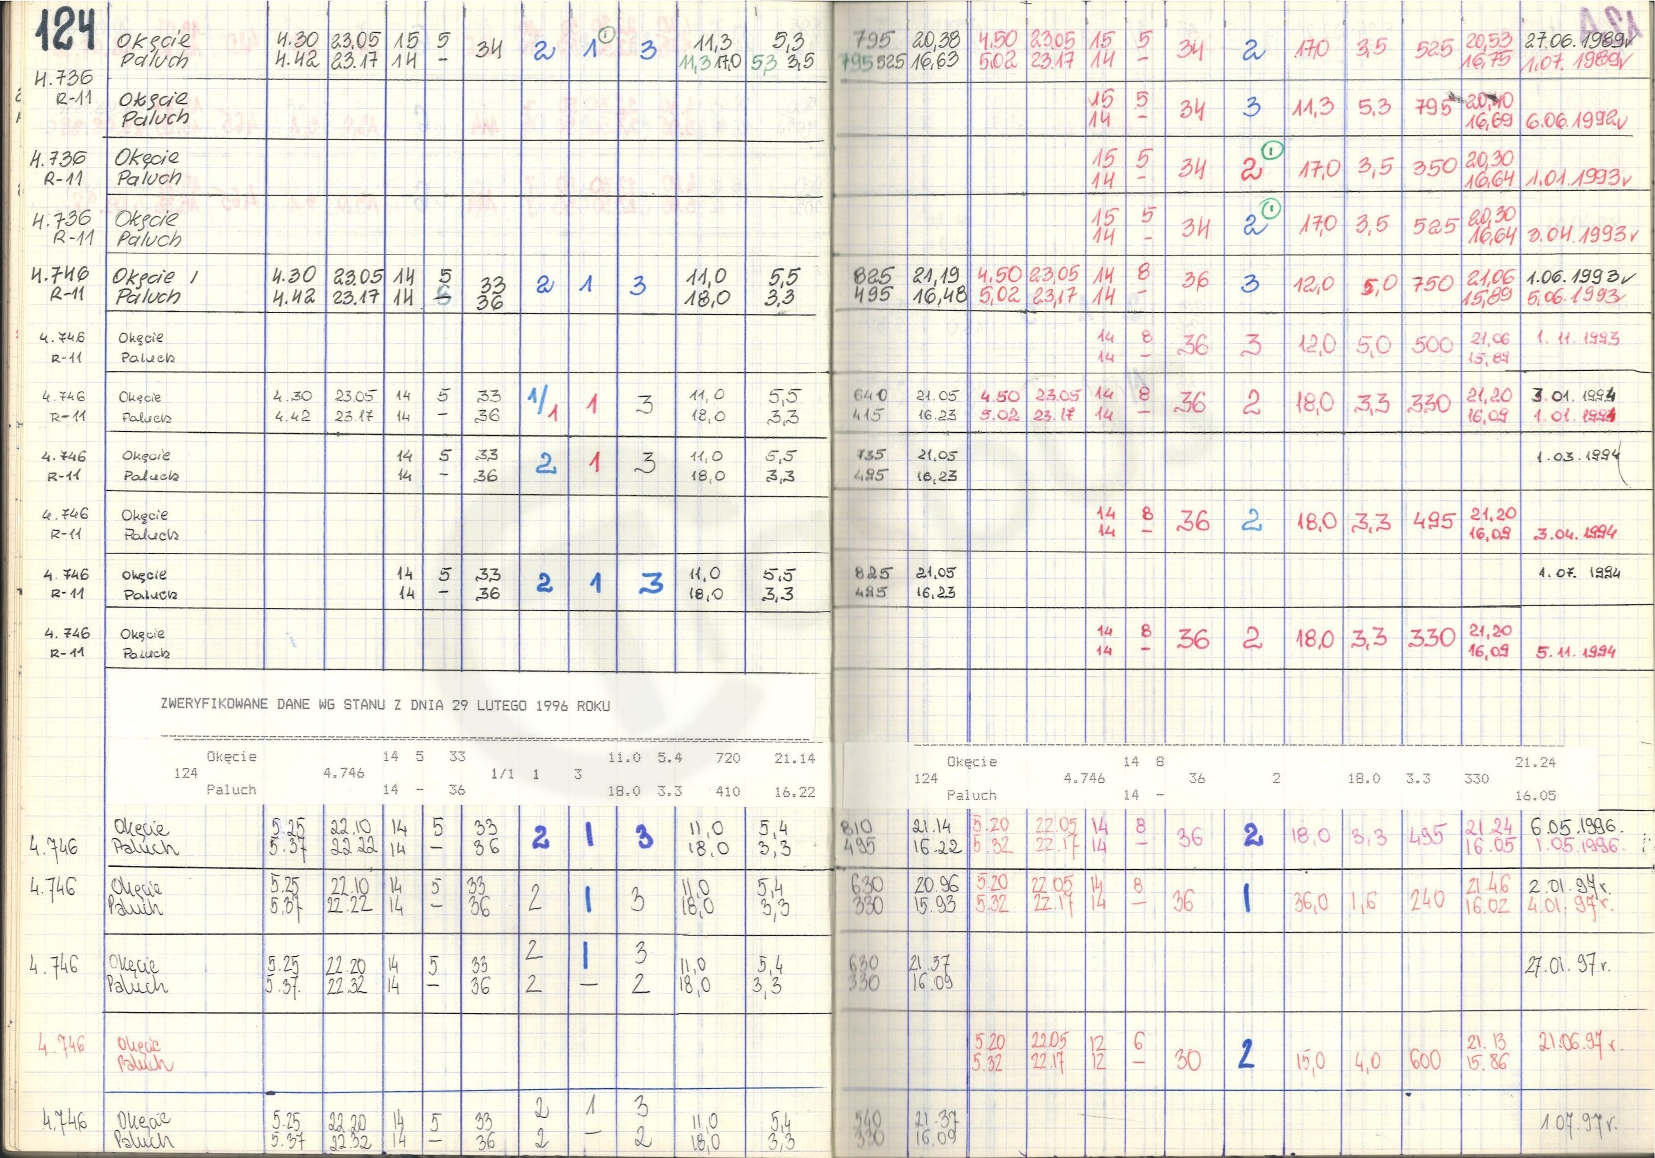 124 Okęcie 4.30 23.05 15 5 34 2 1 ① 3 11,3 5,3 795 20,38 4.50 23.05 15 5 34 2 17,0 3,5 525 20,53 27.06.1989r
Paluch 4.42 23.17 14 - 11,3 17,0 5,3 3,5 795 525 16,63 5.02 23.17 14 - 16,75 1.07.1989r
4.736
R-11 Okęcie 15 5 34 3 11,3 5,3 795 20,40
Paluch 14 - 16,69 6.06.1992r
4.736 Okęcie 15 5 34 2 ① 17,0 3,5 350 20,30
R-11 Paluch 14 - 16,64 1.01.1993r
4.736 Okęcie 15 5 34 2 ① 17,0 3,5 525 20,30
R-11 Paluch 14 - 16,64 3.04.1993r
4.746 Okęcie 4.30 23.05 14 5 33 2 1 3 11,0 5,5 825 21,19 4.50 23.05 14 8 36 3 12,0 5,0 750 21,06 1.06.1993r
R-11 Paluch 4.42 23.17 14 36 18,0 3,3 495 16,48 5.02 23,17 14 - 15,89 5.06.1993r
4.746 Okęcie 14 8 36 3 12,0 5,0 500 21,06 1.11.1993
R-11 Paluch 14 - 15,89
4.746 Okęcie 4.30 23.05 14 5 33 1/1 1 3 11,0 5,5 640 21.05 4.50 23.05 14 8 36 2 18,0 3,3 330 21,20 3.01.1994
R-11 Paluch 4.42 23.17 14 - 36 18,0 3,3 415 16.23 5.02 23.17 14 - 16,09 1.01.1994
4.746 Okęcie 14 5 33 2 1 3 11,0 5,5 735 21,05 1.03.1994
R-11 Paluch 14 - 36 18,0 3,3 495 16,23
4.746 Okęcie 14 8 36 2 18,0 3,3 495 21,20
R-11 Paluch 14 - 16,09 3.04.1994
4.746 Okęcie 14 5 33 2 1 3 11,0 5,5 825 21,05 1.07.1994
R-11 Paluch 14 - 36 18,0 3,3 495 16,23
4.746 Okęcie 14 8 36 2 18,0 3,3 330 21,20
R-11 Paluch 14 - 16,09 5.11.1994
ZWERYFIKOWANE DANE WG STANU Z DNIA 29 LUTEGO 1996 ROKU
Okęcie 14 5 33 11.0 5.4 720 21.14 Okęcie 14 8 21.24
124 4.746 1/1 1 3 124 4.746 36 2 18.0 3.3 330
Paluch 14 - 36 18.0 3.3 410 16.22 Paluch 14 - 16.05
Okęcie 5.25 22.10 14 5 33 2 1 3 11,0 5,4 810 21.14 5.20 22.05 14 8 36 2 18,0 3,3 495 21.24 6.05.1996.
4.746 Paluch 5.37 22.22 14 - 36 18,0 3,3 495 16.22 5.32 22.17 14 - 16.05 1.05.1996.
4.746 Okęcie 5.25 22.10 14 5 33 2 1 3 11,0 5,4 630 20.96 5.20 22.05 14 8 36 1 36,0 1,6 240 21.46 2.01.97r.
Paluch 5.37 22.22 14 - 36 18,0 3,3 330 15.93 5.32 22.17 14 - 16.02 4.01.97r.
4.746 Okęcie 5.25 22.20 14 5 33 2 1 3 11,0 5,4 630 21.37 27.01.97r.
Paluch 5.37. 22.32 14 - 36 2 - 2 18,0 3,3 330 16.09
4.746 Okęcie 5.20 22.05 12 6 30 2 15,0 4,0 600 21.13 21.06.97r.
Paluch 5.32 22.17 12 - 15.86
4.746 Okęcie 5.25 22.20 14 5 33 2 1 3 11,0 5,4 540 21.37 1.07.97r.
Paluch 5.37 22.32 14 - 36 2 - 2 18,0 3,3 330 16,09